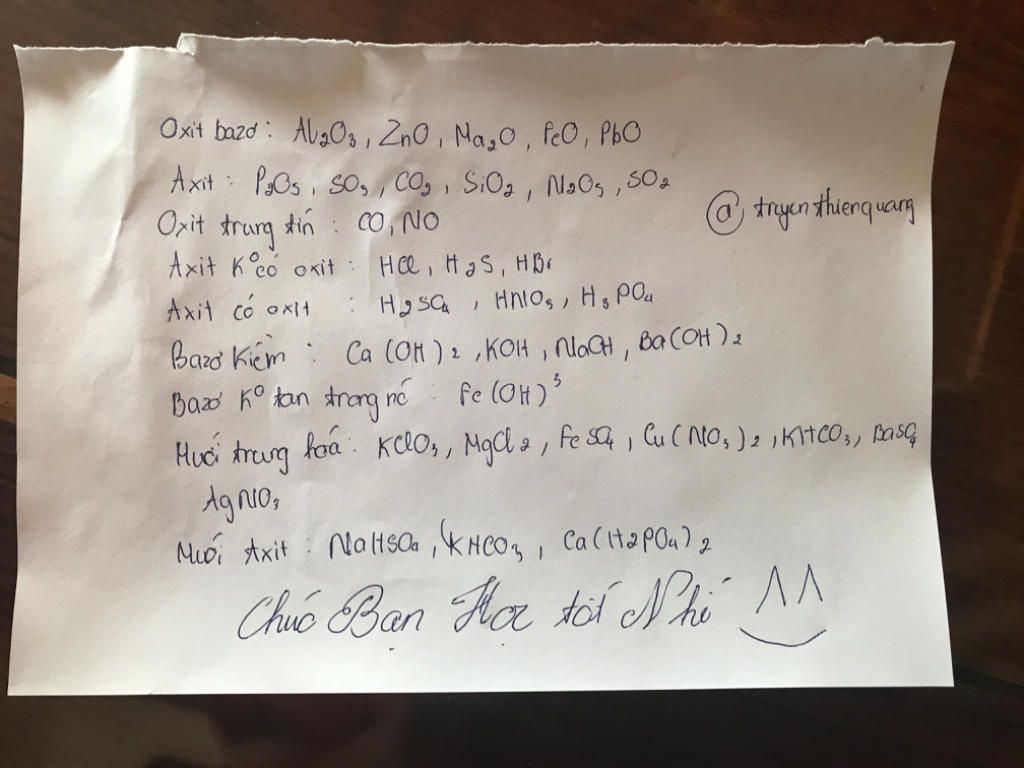 Oxit bazơ : Al2O3, ZnO, Na2O, FeO, PbO
Axit : P2O5, SO3, CO2, SiO2, N2O5, SO2
@ truyenthienquang
Oxit trung tín : CO, NO
Axit Ko có oxit : HCl, H2S, HBr
Axit có oxit : H2SO4, HNO3, H3PO4
Bazơ Kiềm : Ca(OH)2, KOH, NaOH, Ba(OH)2
Bazơ Ko tan trong nc : Fe(OH)3
Muối trung hoá : KClO3, MgCl2, FeSO4, Cu(NO3)2, KHCO3, BaSO4
AgNO3
Muối Axit : NaHSO4, (KHCO3, Ca(H2PO4)2
Chúc Bạn Học tốt Nhé ^^